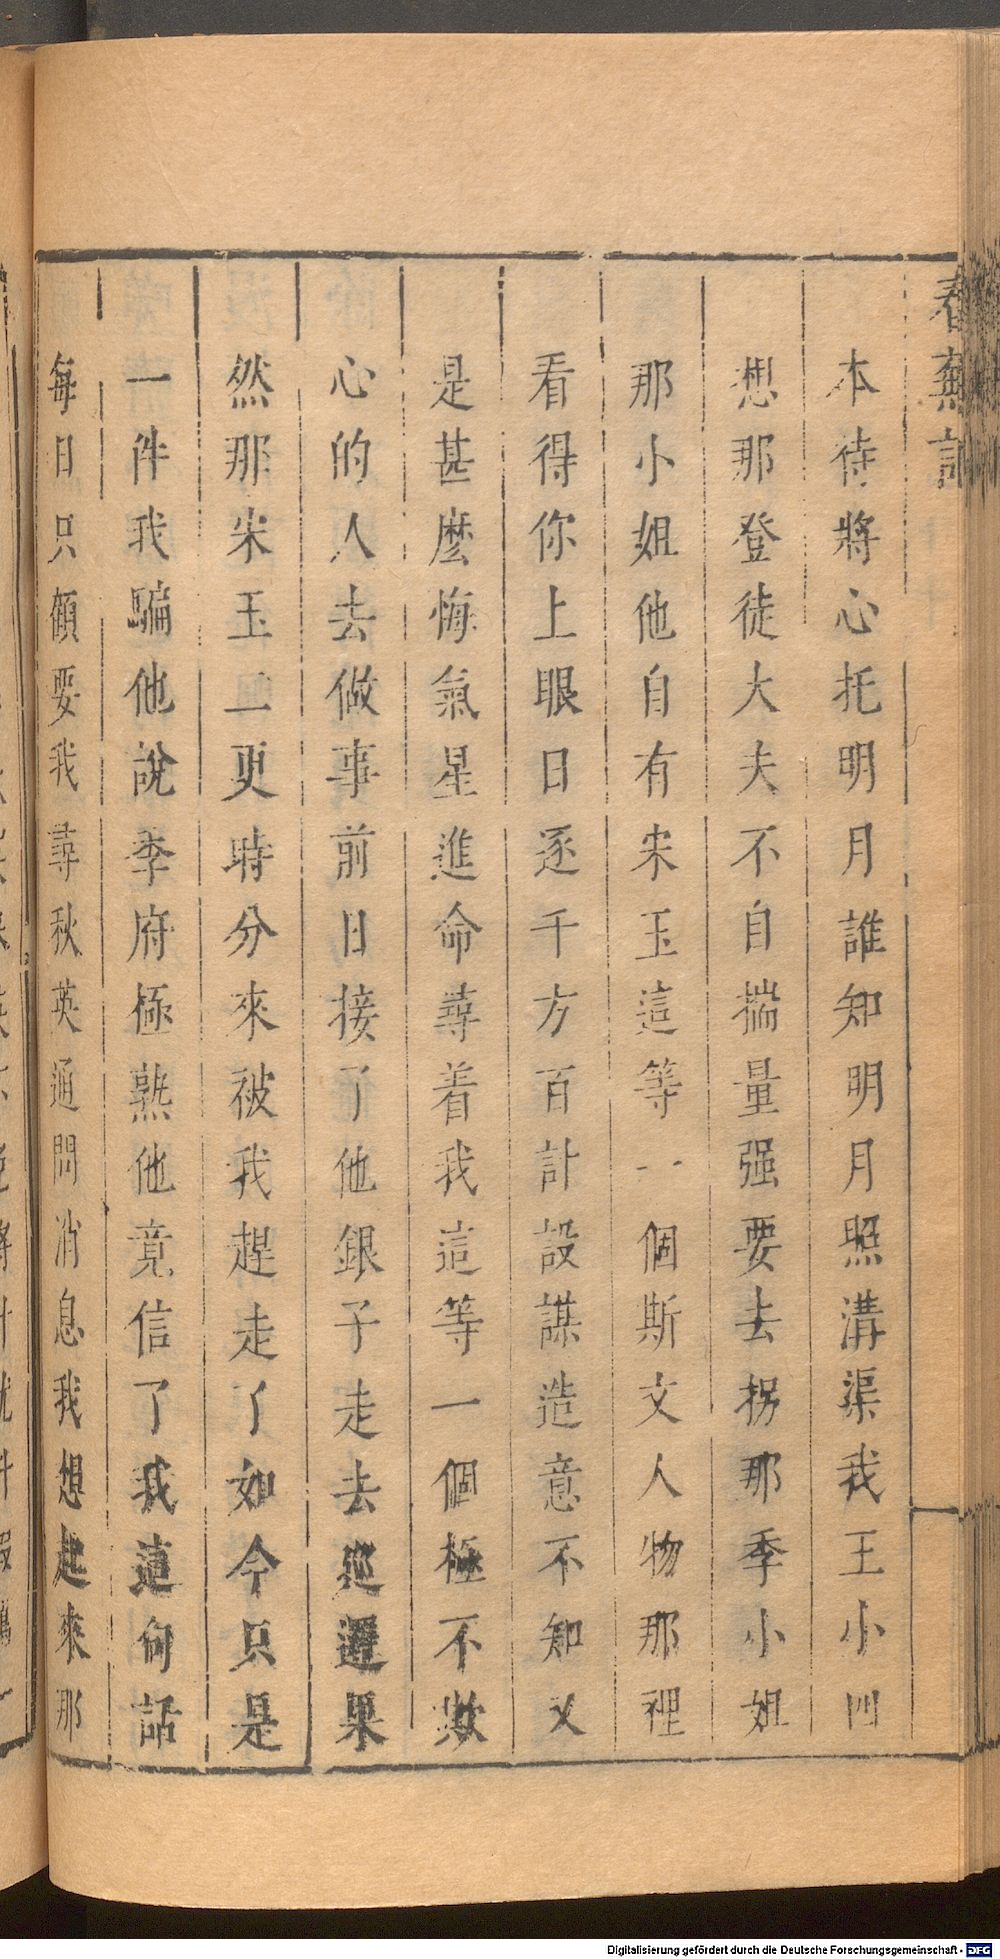 春蕪記
本待將心托明月誰知明月照溝渠我王小四
想那登徒大夫不自揣量强要去拐那季小姐
那小姐他自有宋玉這等一個斯文人物那裡
看得你上眼日逐千方百計設謀造意不知又
是甚麽悔氣星進命尋着我這等一個極不欺
心的人去做事前日接了他銀子走去廵邏果
然那宋玉一更時分來被我趕走了如今只是
一件我騙他說季府極熟他竟信了我這句話
每日只顧要我尋秋英通問消息我想起來那
Digitalisierung gefördert durch die Deutsche Forschungsgemeinschaft - DFG